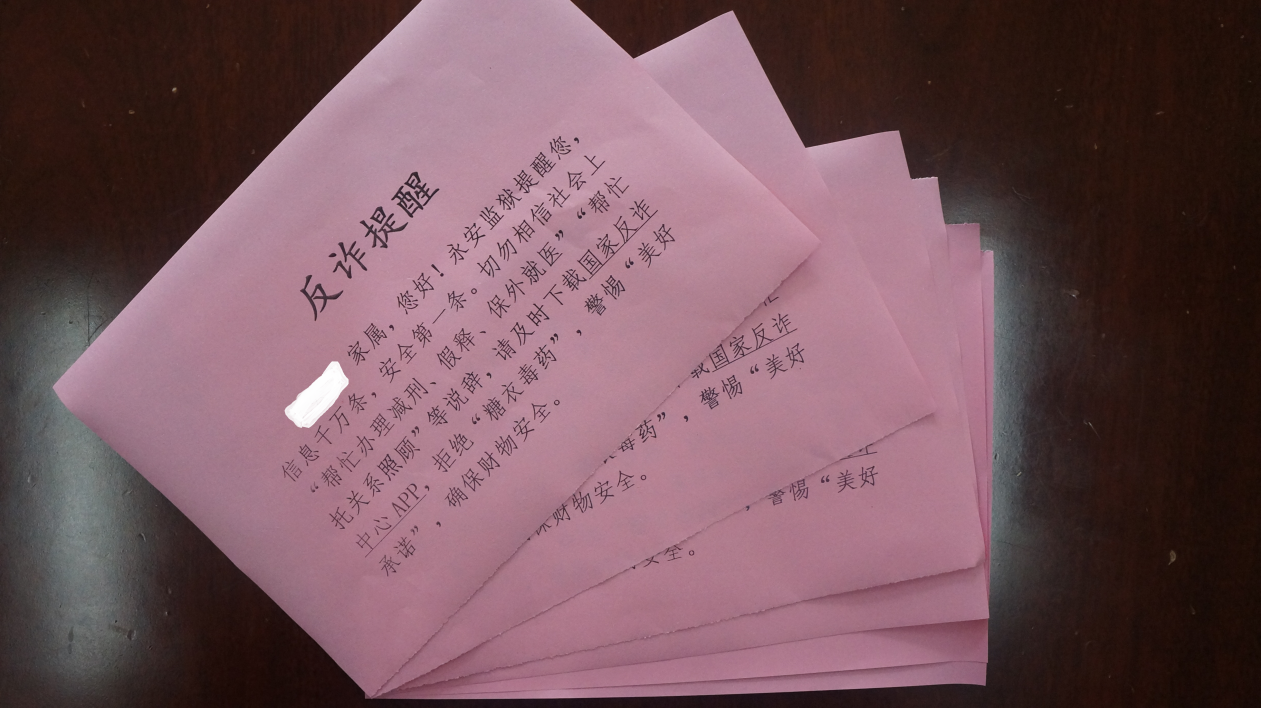 反诈提醒
家属，您好！永安监狱提醒您，
信息千万条，安全第一条。切勿相信社会上
“帮忙办理减刑、假释、保外就医”“帮忙
托关系照顾”等说辞，请及时下载国家反诈
中心APP，拒绝“糖衣毒药”，警惕“美好
承诺”，确保财物安全。
载国家反诈
毒药”，警惕“美好
保财物安全。
，警惕“美好
安全。